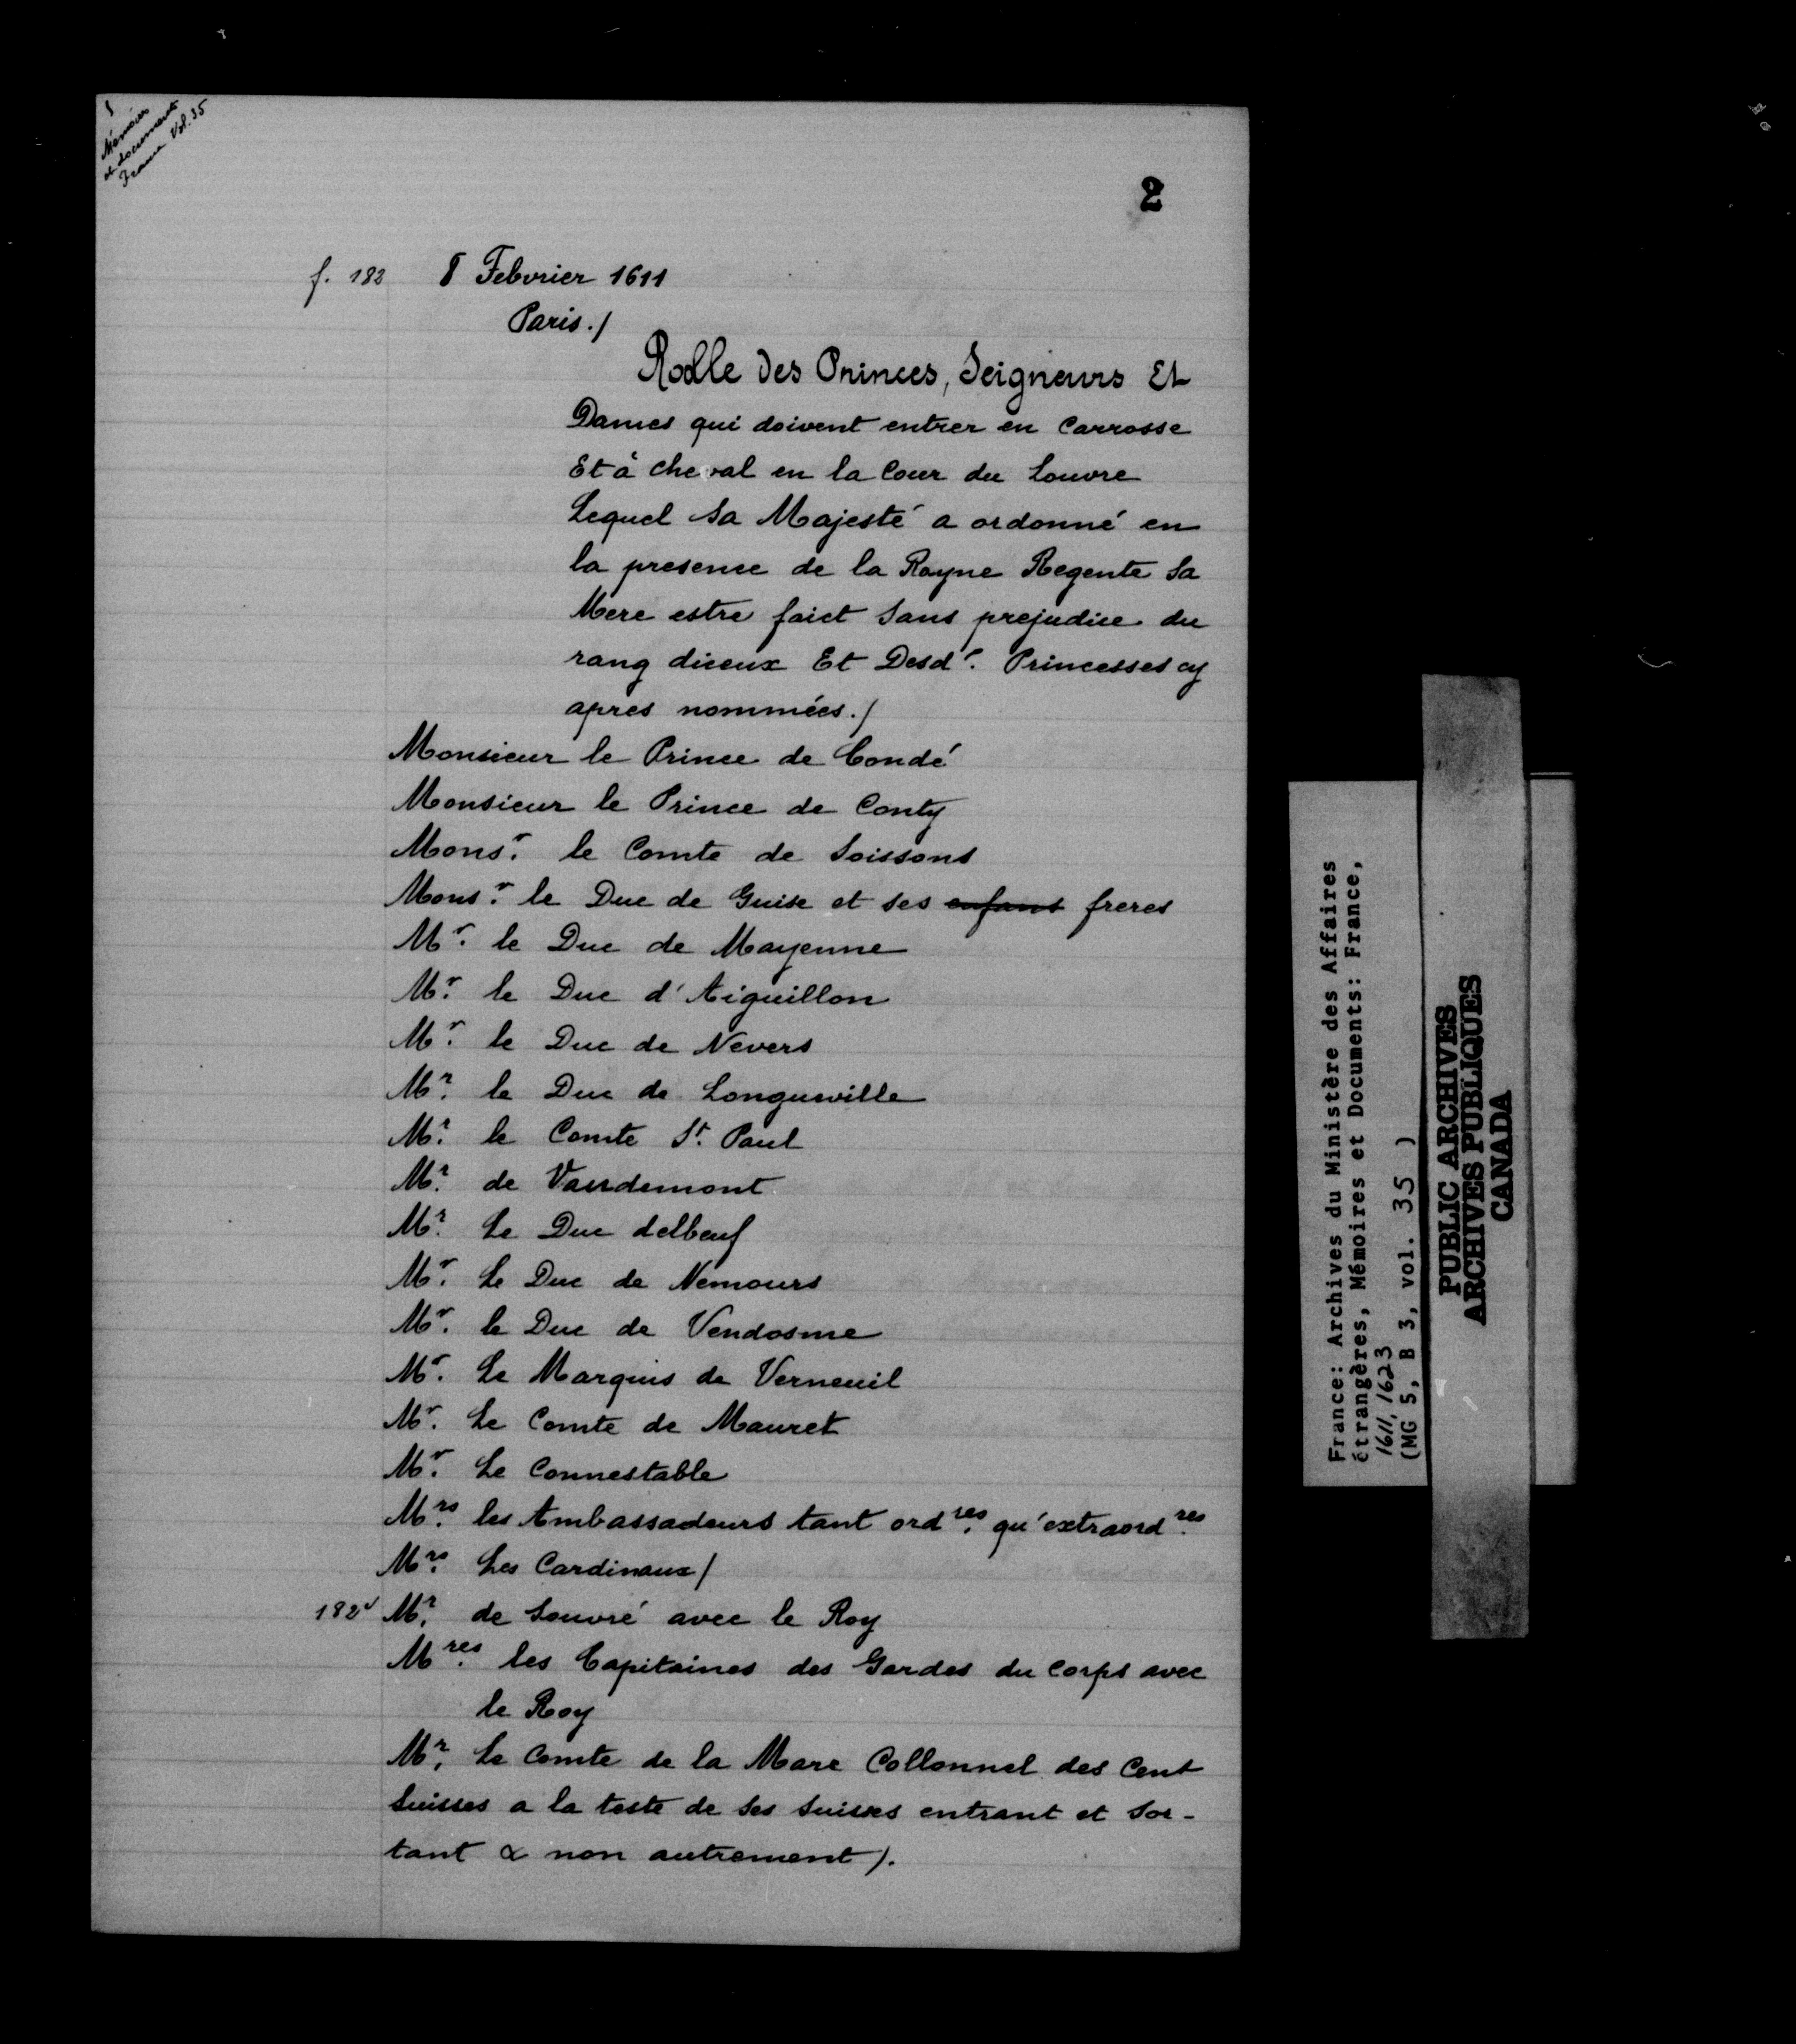 8
Mémoires
et documents
France Vol. 35
2
f. 182 8 Febvrier 1611
Paris./
Rolle des Princes, Seigneurs Et
Dames qui doivent entrer en Carrosse
Et à cheval en la Cour du Louvre
Lequel sa Majesté a ordonné en
la presence de la Royne Regente sa
Mere estre faict sans prejudice du
rang diceux Et Desd.s Princesses cy
apres nommées./
Monsieur le Prince de Condé
Monsieur le Prince de Conty
Mons.r le Comte de Soissons
Mons.r le Duc de Guise et ses enfans freres
M.r le Duc de Mayenne
M.r le Duc d'Aiguillon
M.r le Duc de Nevers
M.r le Duc de Longueville
M.r le Comte St. Paul
M.r de Vaudemont
M.r Le Duc delbeuf
M.r Le Duc de Nemours
M.r le Duc de Vendosme
M.r Le Marquis de Verneuil
M.r Le Comte de Mauret
M.r Le Connestable
M.rs les Ambassadeurs tant ord.res qu'extraord.res
M.rs Les Cardinaux/
182v M.r de Souvré avec le Roy
M.res les Capitaines des Gardes du Corps avec
le Roy
M.r Le Comte de la Marc Collonnel des Cent
Suisses a la teste de ses suisses entrant et sor-
tant & non autrement/.
France: Archives du Ministère des Affaires
étrangères, Mémoires et Documents: France,
1611, 1623
(MG 5, B 3, vol. 35 )
PUBLIC ARCHIVES
ARCHIVES PUBLIQUES
CANADA